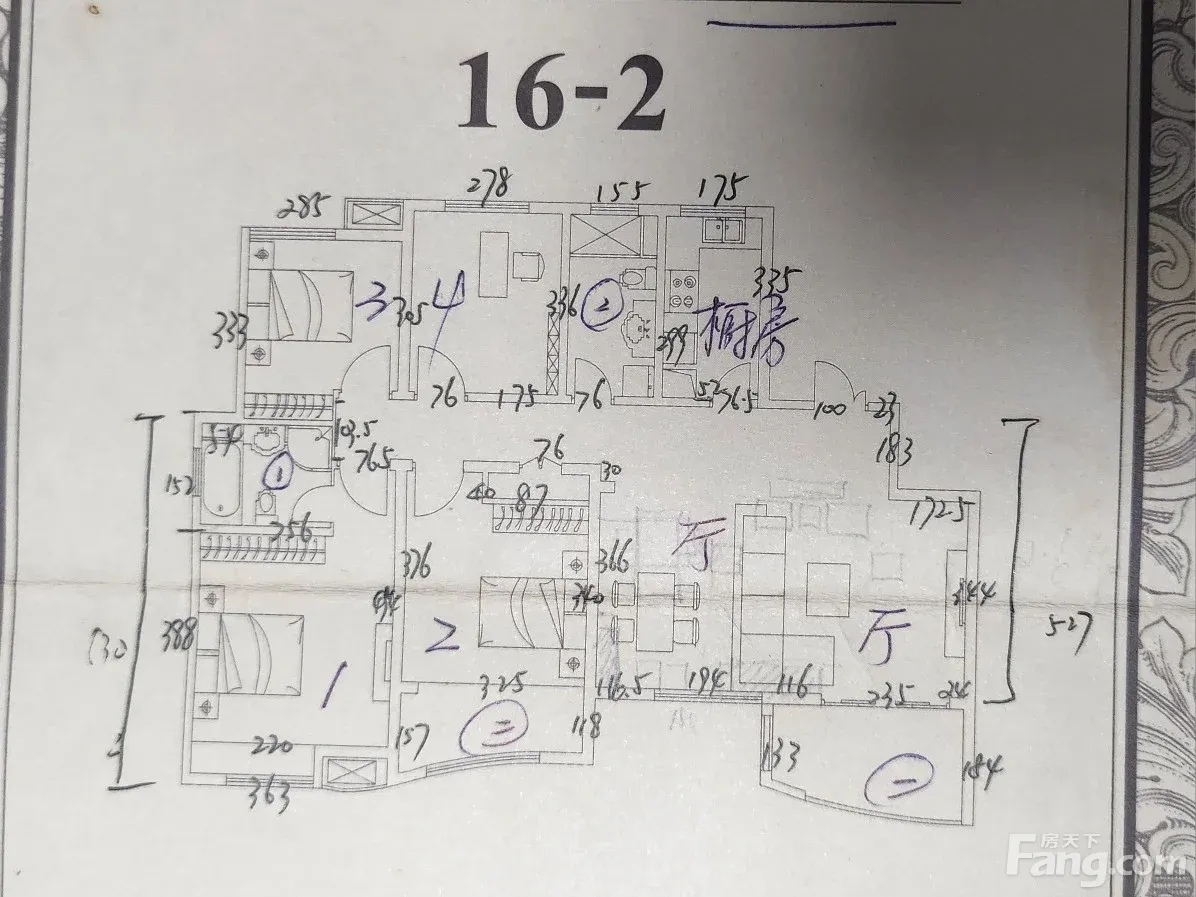 16-2
278
155
175
285
3
305
4
336
2
335
厨房
333
299
76
175
76
52
76.5
100
23
183
103.5
765
76
30
152
1
256
40
87
厅
172.5
376
366
344
388
2
340
厅
527
1
325
116.5
194
116
235
24
157
二
118
133
一
184
220
363
房天下
Fang.com